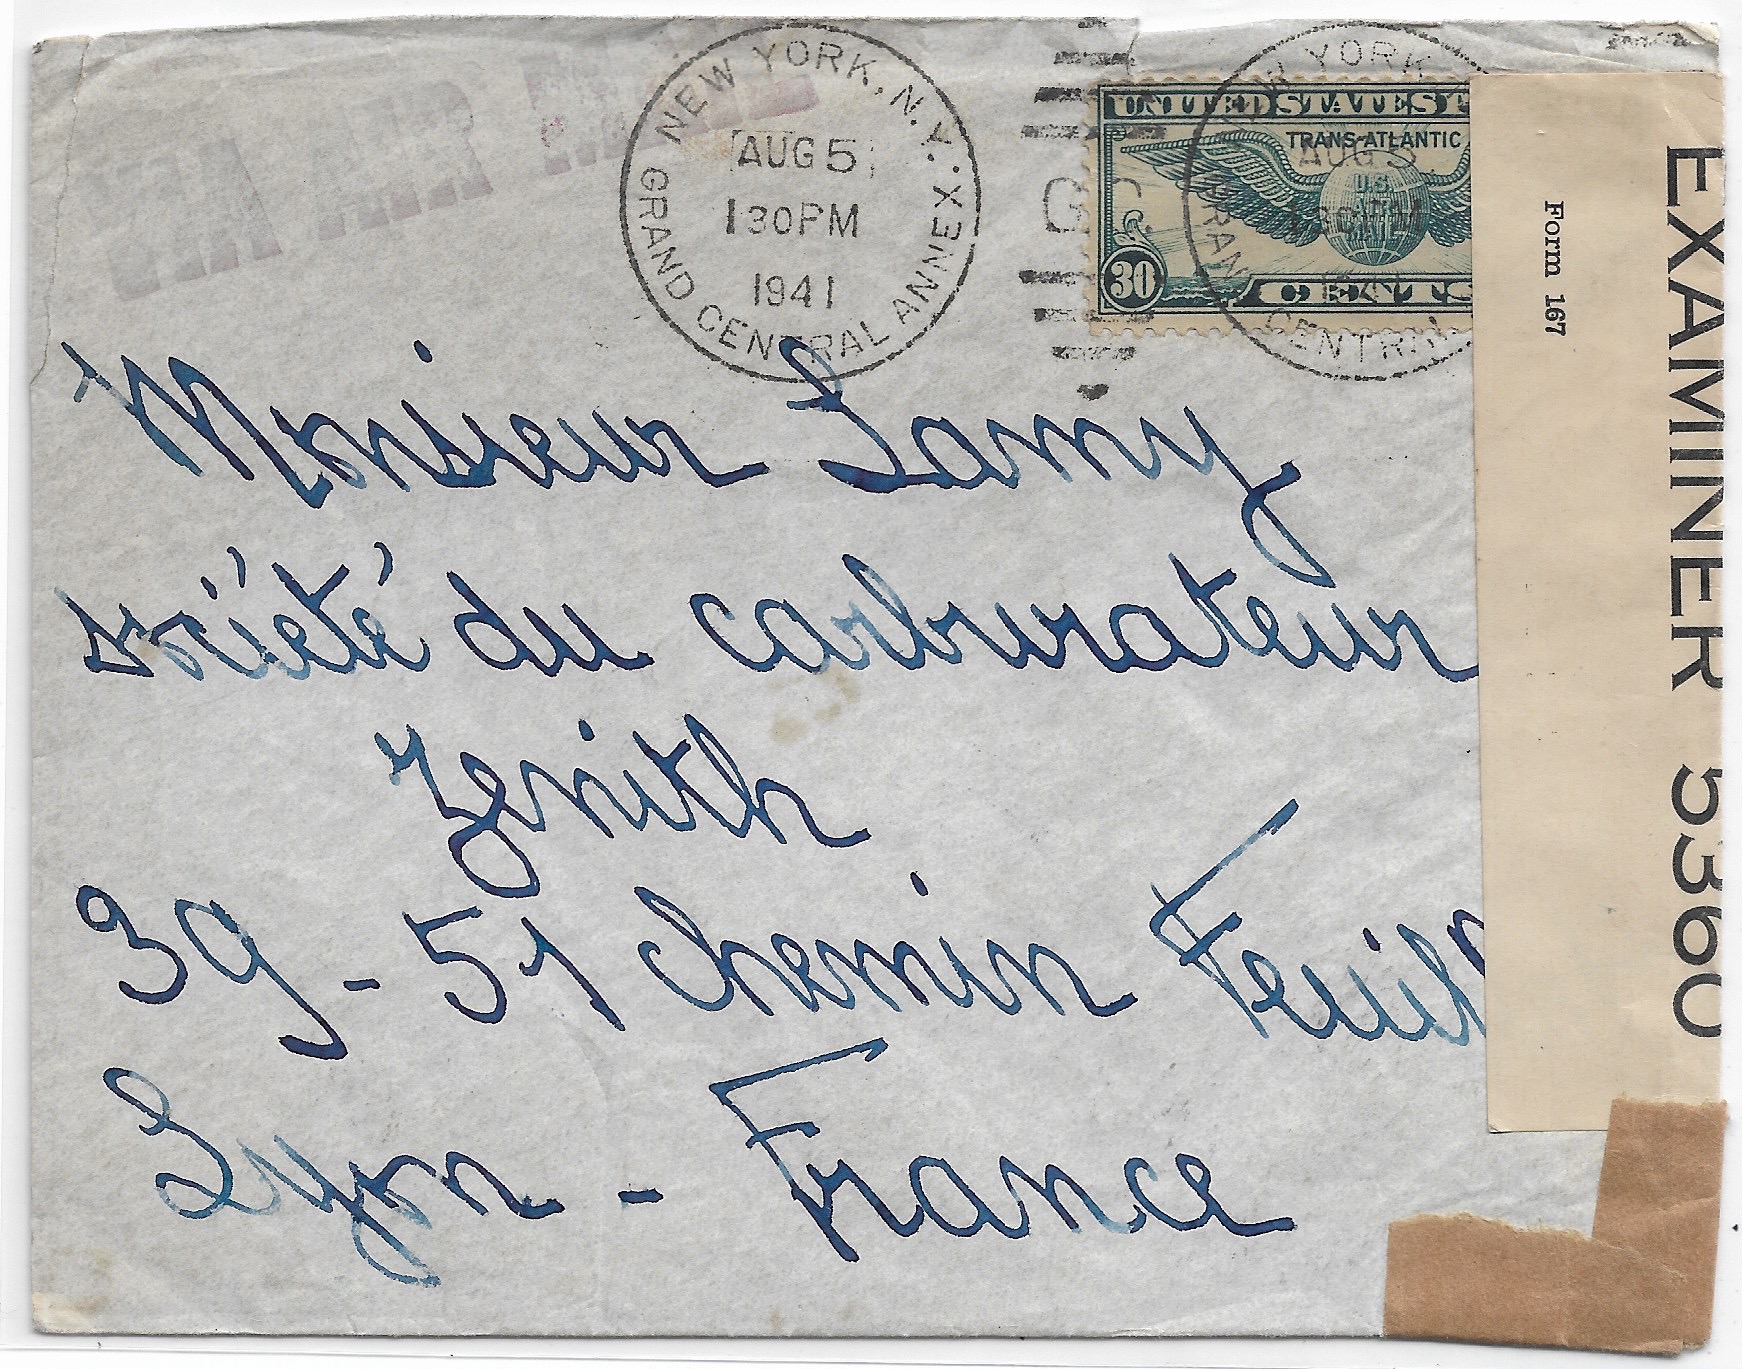 NEW YORK, N.Y.
AUG 5
1 30 PM
1941
GRAND CENTRAL ANNEX.
G. C.
YORK
AUG 5
CENTRAL
UNITED STATES
TRANS-ATLANTIC
U.S.
30
CENTS
Form 167
EXAMINER 5360
Monsieur Lamy
société du carburateur
zenith
39 - 51 chemin Feuill
Lyon - France